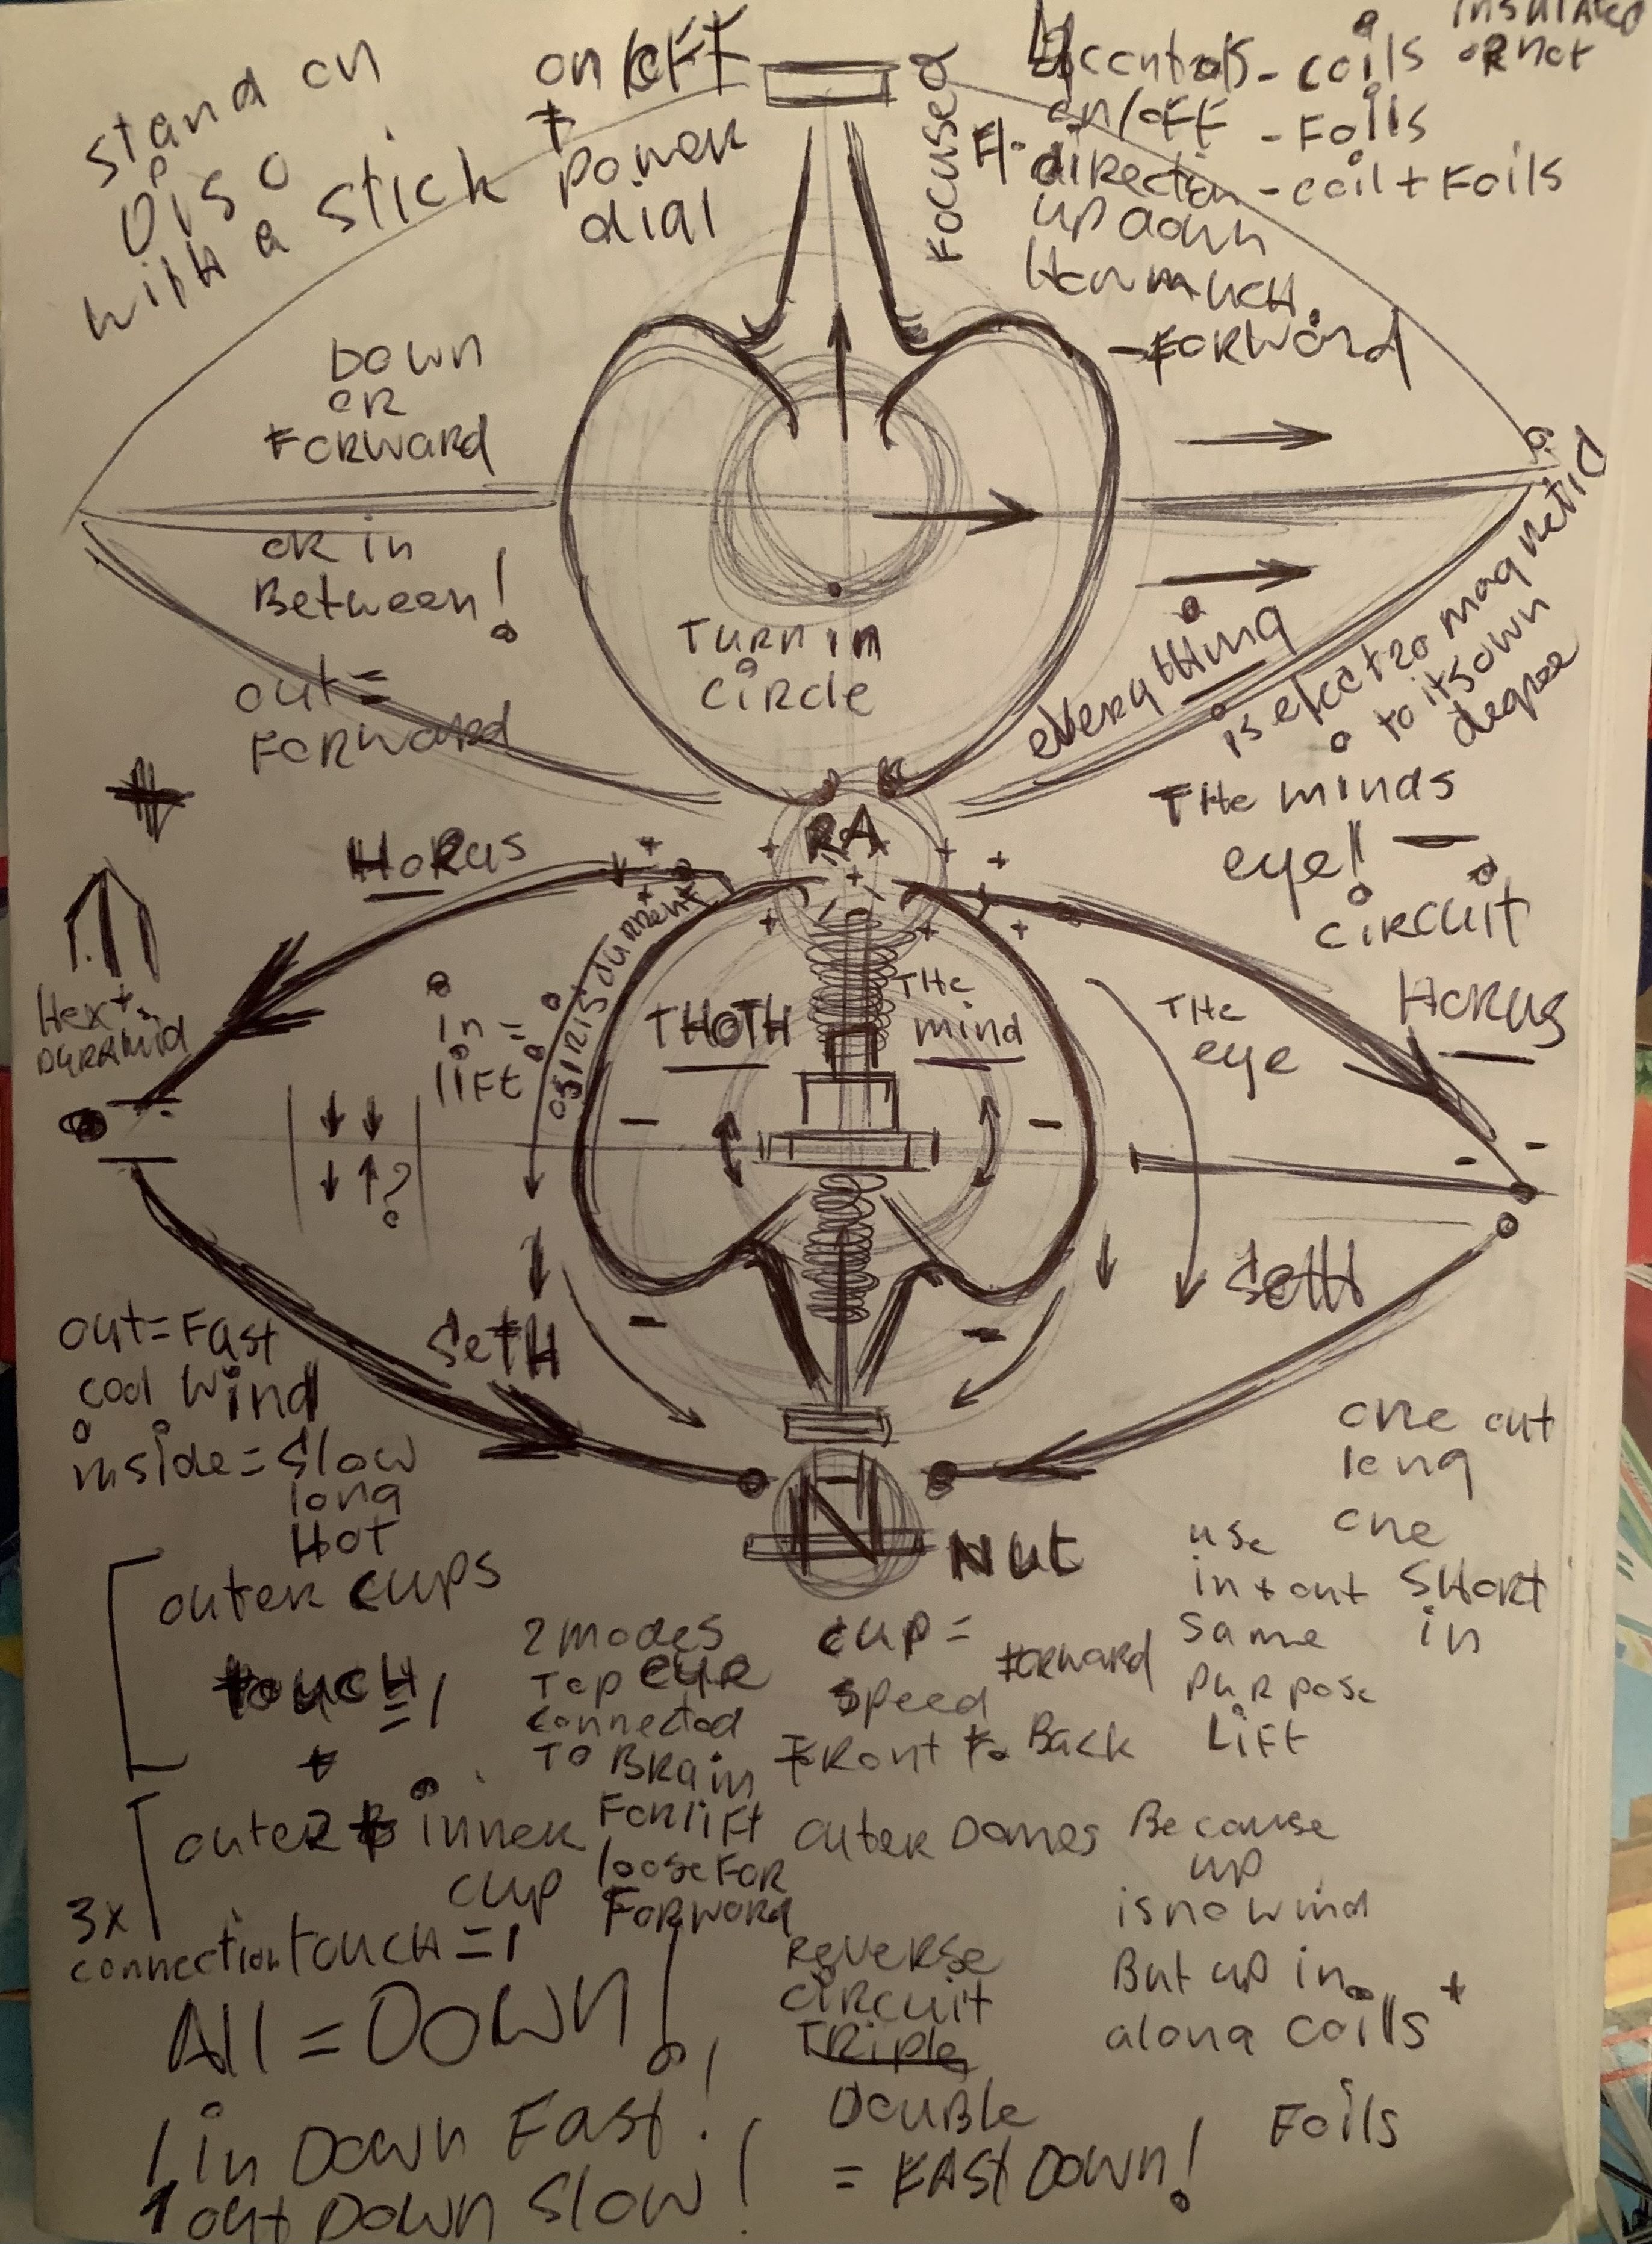 stand on
DISC
with a stick
on/OFF
+
power
dial
FOCUSED
controls - coils
insulated
OR not
on/OFF - Foils
direction - coil + Foils
up down
How much
- FORWARD
DOWN
OR
FORWARD
OR in
Between!
out =
FORWARD
TURN in
CIRCLE
everything
is electro magnetic
to its own
degree
THe minds
eye!
circuit
RA
HORUS
HORUS
OSIRIS current
in =
liFt
THOTH
THe
mind
THe
eye
?
SetH
SetH
out = Fast
cool wind
inside = Slow
long
Hot
N
Nut
one out
long
one
SHort
in
use
in + out
same
purpose
LiFt
outer cups
toucH = 1
+
outer + inner
cup
3x
connection toucH = 1
2 modes
Top
connected
To Brain
For liFt
loose FOR
FORWORD
cup =
speed FORWARD
FRont to Back
outer Domes
Because
up
is no wind
But up in
along coils +
Foils
All = DOWN!
Reverse
circuit
Double
= FAst DOWN!
1 in DOWN Fast!
1 out DOWN SloW!